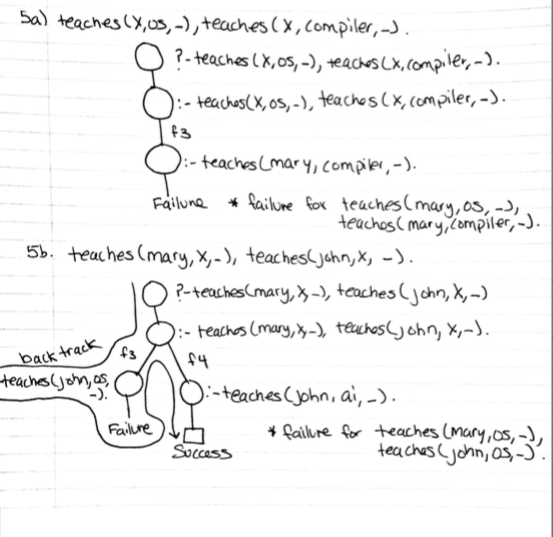 5a) teaches(X,os,-), teaches(X, compiler, -).
?- teaches(X,os,-), teaches(X,compiler,-).
:- teaches(X,os,-), teaches(X,compiler,-).
f3
:- teaches(mary, compiler, -).
Failure * failure for teaches(mary,os,-),
teaches(mary,compiler,-).
5b. teaches(mary,X,-), teaches(john,X, -).
?-teaches(mary,X,-), teaches(john,X,-)
:- teaches(mary,X,-), teaches(john, X,-).
backtrack
f3
f4
teaches(john,os,
-).
:-teaches(john, ai, -).
Failure
* failure for teaches(mary,os,-),
teaches(john,os,-).
Success